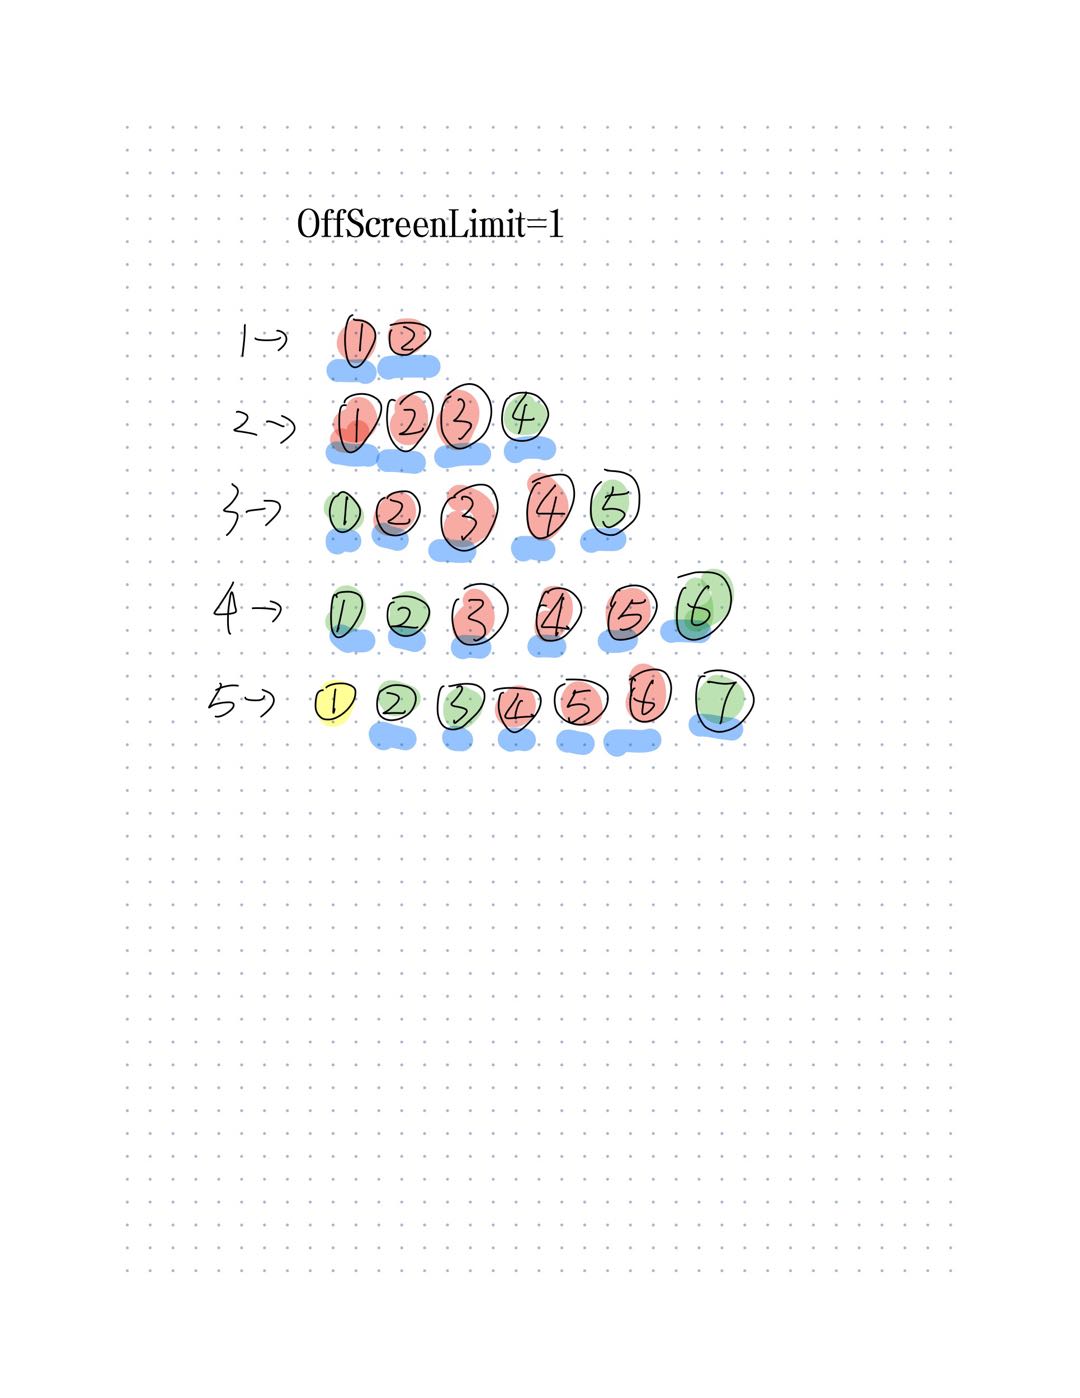 OffScreenLimit=1
1→ ① ②
2→ ① ② ③ ④
3→ ① ② ③ ④ ⑤
4→ ① ② ③ ④ ⑤ ⑥
5→ ① ② ③ ④ ⑤ ⑥ ⑦